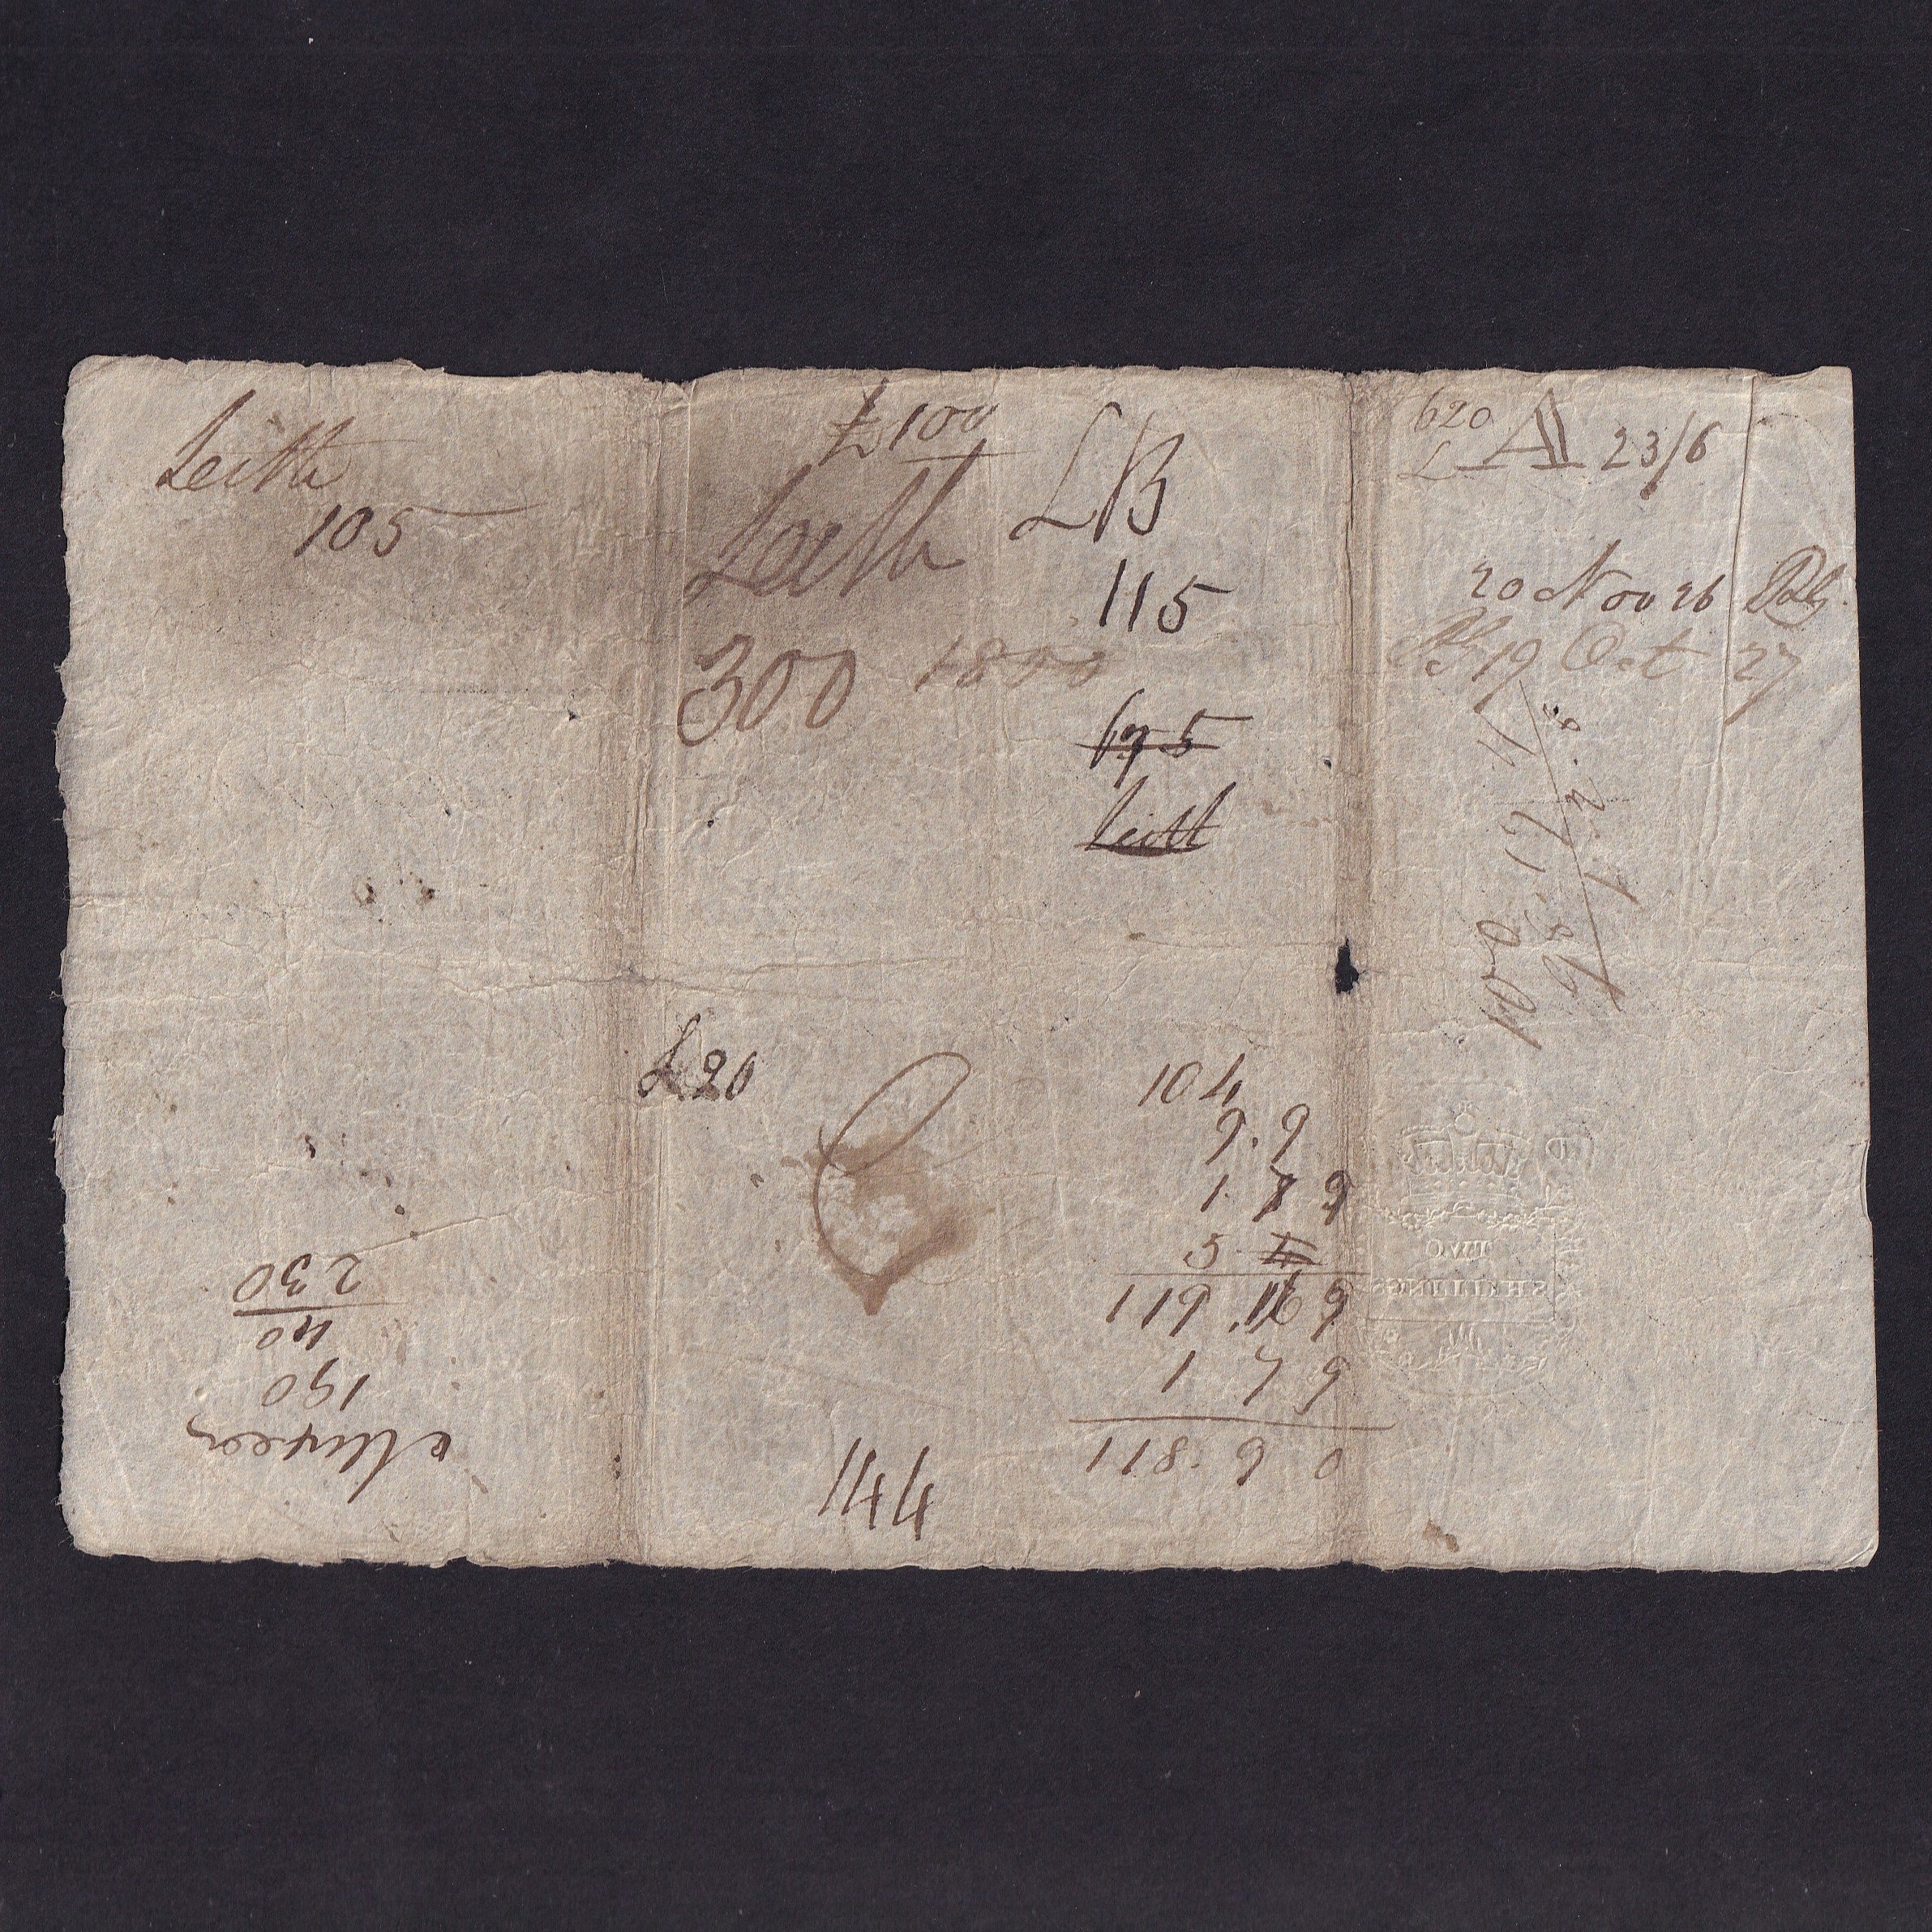 Leith
105
£100
Leith
300 1800
LB
115
695
Leith
620
£ A 23/6
20 Nov 26
19 Oct 27
100
£20
104
9. 9
1. 7 9
5
119. 16 9
1 7 9
118. 9 0
TWO
SHILLINGS
144
190
40
230